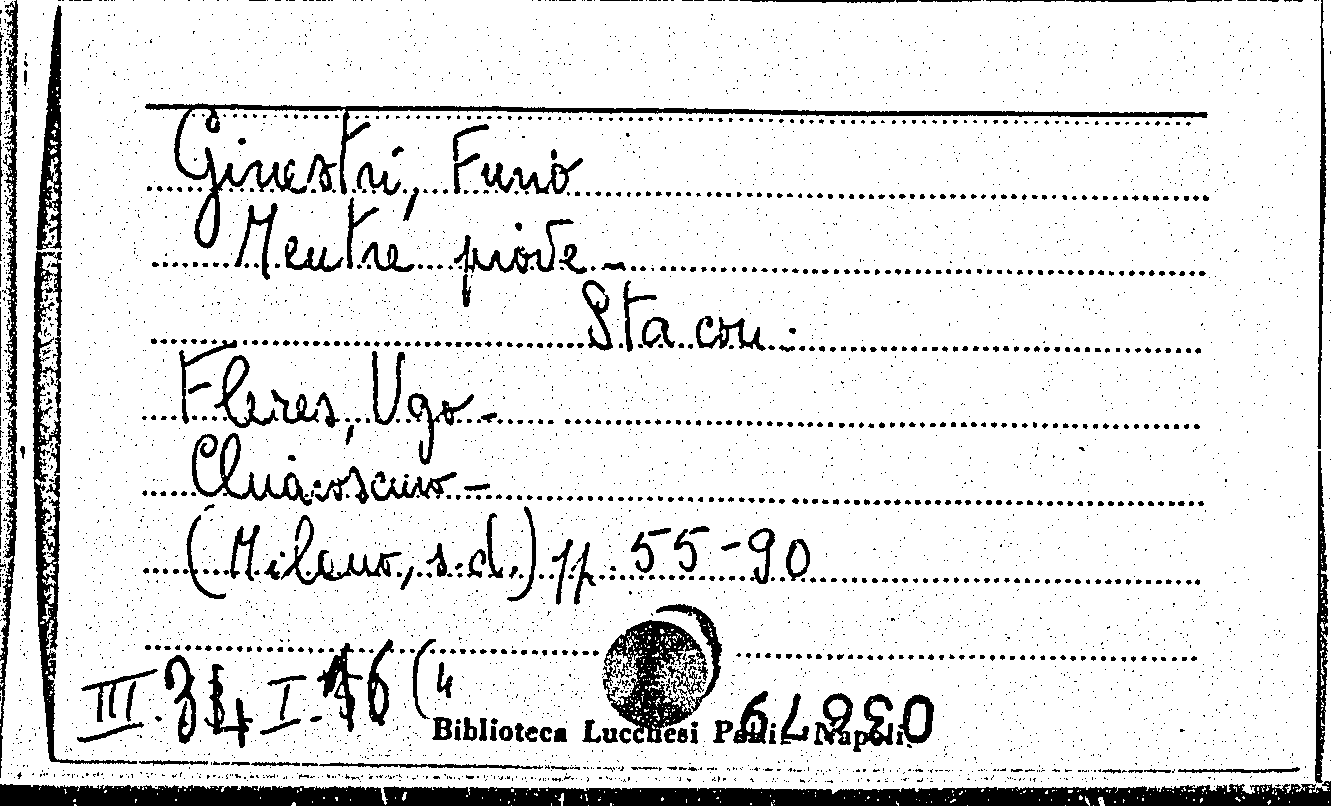 Ginestri, Furio
Mentre piove -
Sta con:
Fleres, Ugo -
Chiaroscuro -
(Milano, s.d.) pp. 55-90
III. I. 6 (4
Biblioteca Lucchesi Palli - Napoli